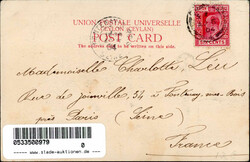 UNION POSTALE UNIVERSELLE
CEYLON (CEYLAN)
POST CARD
The address only to be written on this side.
Mademoiselle Charlotte
Rue de Joinville, 34 à Fontenay sous Bois
près Paris (Seine)
France
0533500979
0
www.slada-auktionen.de